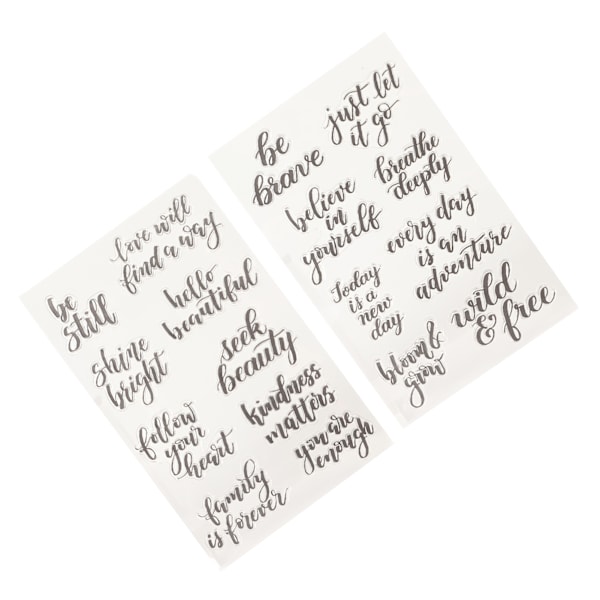 love will
find a way
be
still
hello
beautiful
shine
bright
seek
beauty
follow
your
heart
kindness
matters
you are
enough
family
is forever
be
brave
just let
it go
believe
in
yourself
breathe
deeply
every day
is an
adventure
Today
is a
new
day
wild
& free
bloom &
grow